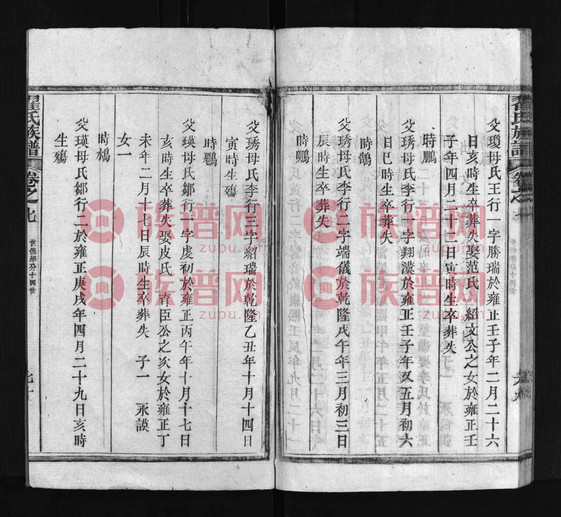 翟氏族譜
卷之
父瓊母氏王行一字勝瑞於雍正壬子年二月二十六
日亥時生卒葬失娶范氏 紹文公之女於雍正壬
子年四月二十二日寅時生卒葬失 子一 永
時鵬
父琇母氏李行一字翔漢於雍正壬子年又五月初六
日巳時生卒葬失
時鶴
父琇母氏李行二字端儀於乾隆戊午年三月初三日
辰時生卒葬失
時鸚
父琇母氏李行三字紹瑞於乾隆乙丑年十月十四日
寅時生殤
時鸚
父瑛母氏鄒行一字虔初於雍正丙午年十月十七日
亥時生卒葬失娶皮氏 臣公之次女於雍正丁
未年二月十七日辰時生卒葬失 子一 永謨
女一
時鵠
父瑛母氏鄒行二於雍正庚戌年四月二十九日亥時
生殤
翟氏族譜
卷之九
族谱网
zupu.cn
族谱网
zupu.cn
族谱网
zupu.cn
族谱网
zupu.cn